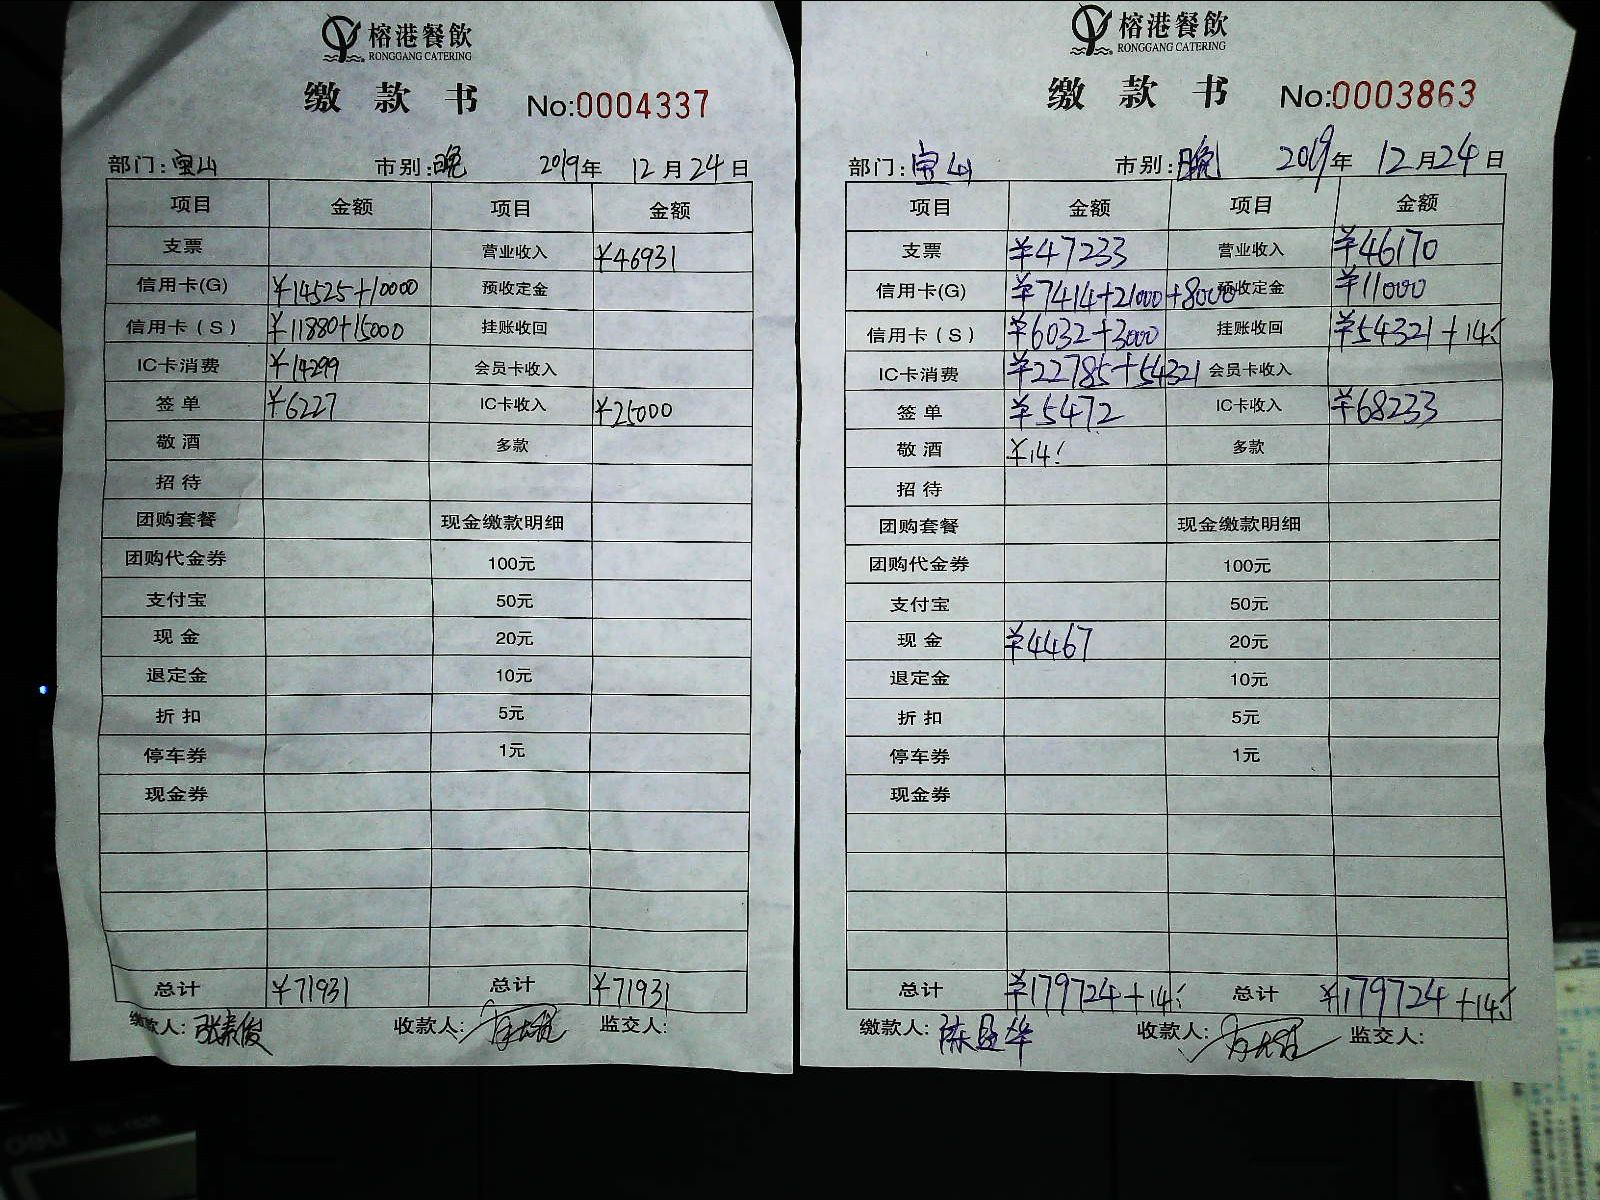 榕港餐飲
RONGGANG CATERING
缴款书 No:0004337
部门:宝山 市别:晚 2019年 12月24日
项目 金额 项目 金额
支票 营业收入 ¥46931
信用卡(G) ¥14525+10000 预收定金
信用卡(S) ¥11880+15000 挂账收回
IC卡消费 ¥14299 会员卡收入
签单 ¥6227 IC卡收入 ¥25000
敬酒 多款
招待
团购套餐 现金缴款明细
团购代金券 100元
支付宝 50元
现金 20元
退定金 10元
折扣 5元
停车券 1元
现金券
总计 ¥71931 总计 ¥71931
缴款人: 收款人: 监交人:
榕港餐飲
RONGGANG CATERING
缴款书 No:0003863
部门:宝山 市别:晚 2019年 12月24日
项目 金额 项目 金额
支票 ¥47233 营业收入 ¥46170
信用卡(G) ¥7414+21000+8000 预收定金 ¥11000
信用卡(S) ¥6032+3000 挂账收回 ¥54321+14.
IC卡消费 ¥22785+54321 会员卡收入
签单 ¥5472 IC卡收入 ¥68233
敬酒 ¥14. 多款
招待
团购套餐 现金缴款明细
团购代金券 100元
支付宝 50元
现金 ¥4467 20元
退定金 10元
折扣 5元
停车券 1元
现金券
总计 ¥179724+14. 总计 ¥179724+14.
缴款人: 收款人: 监交人:
deli